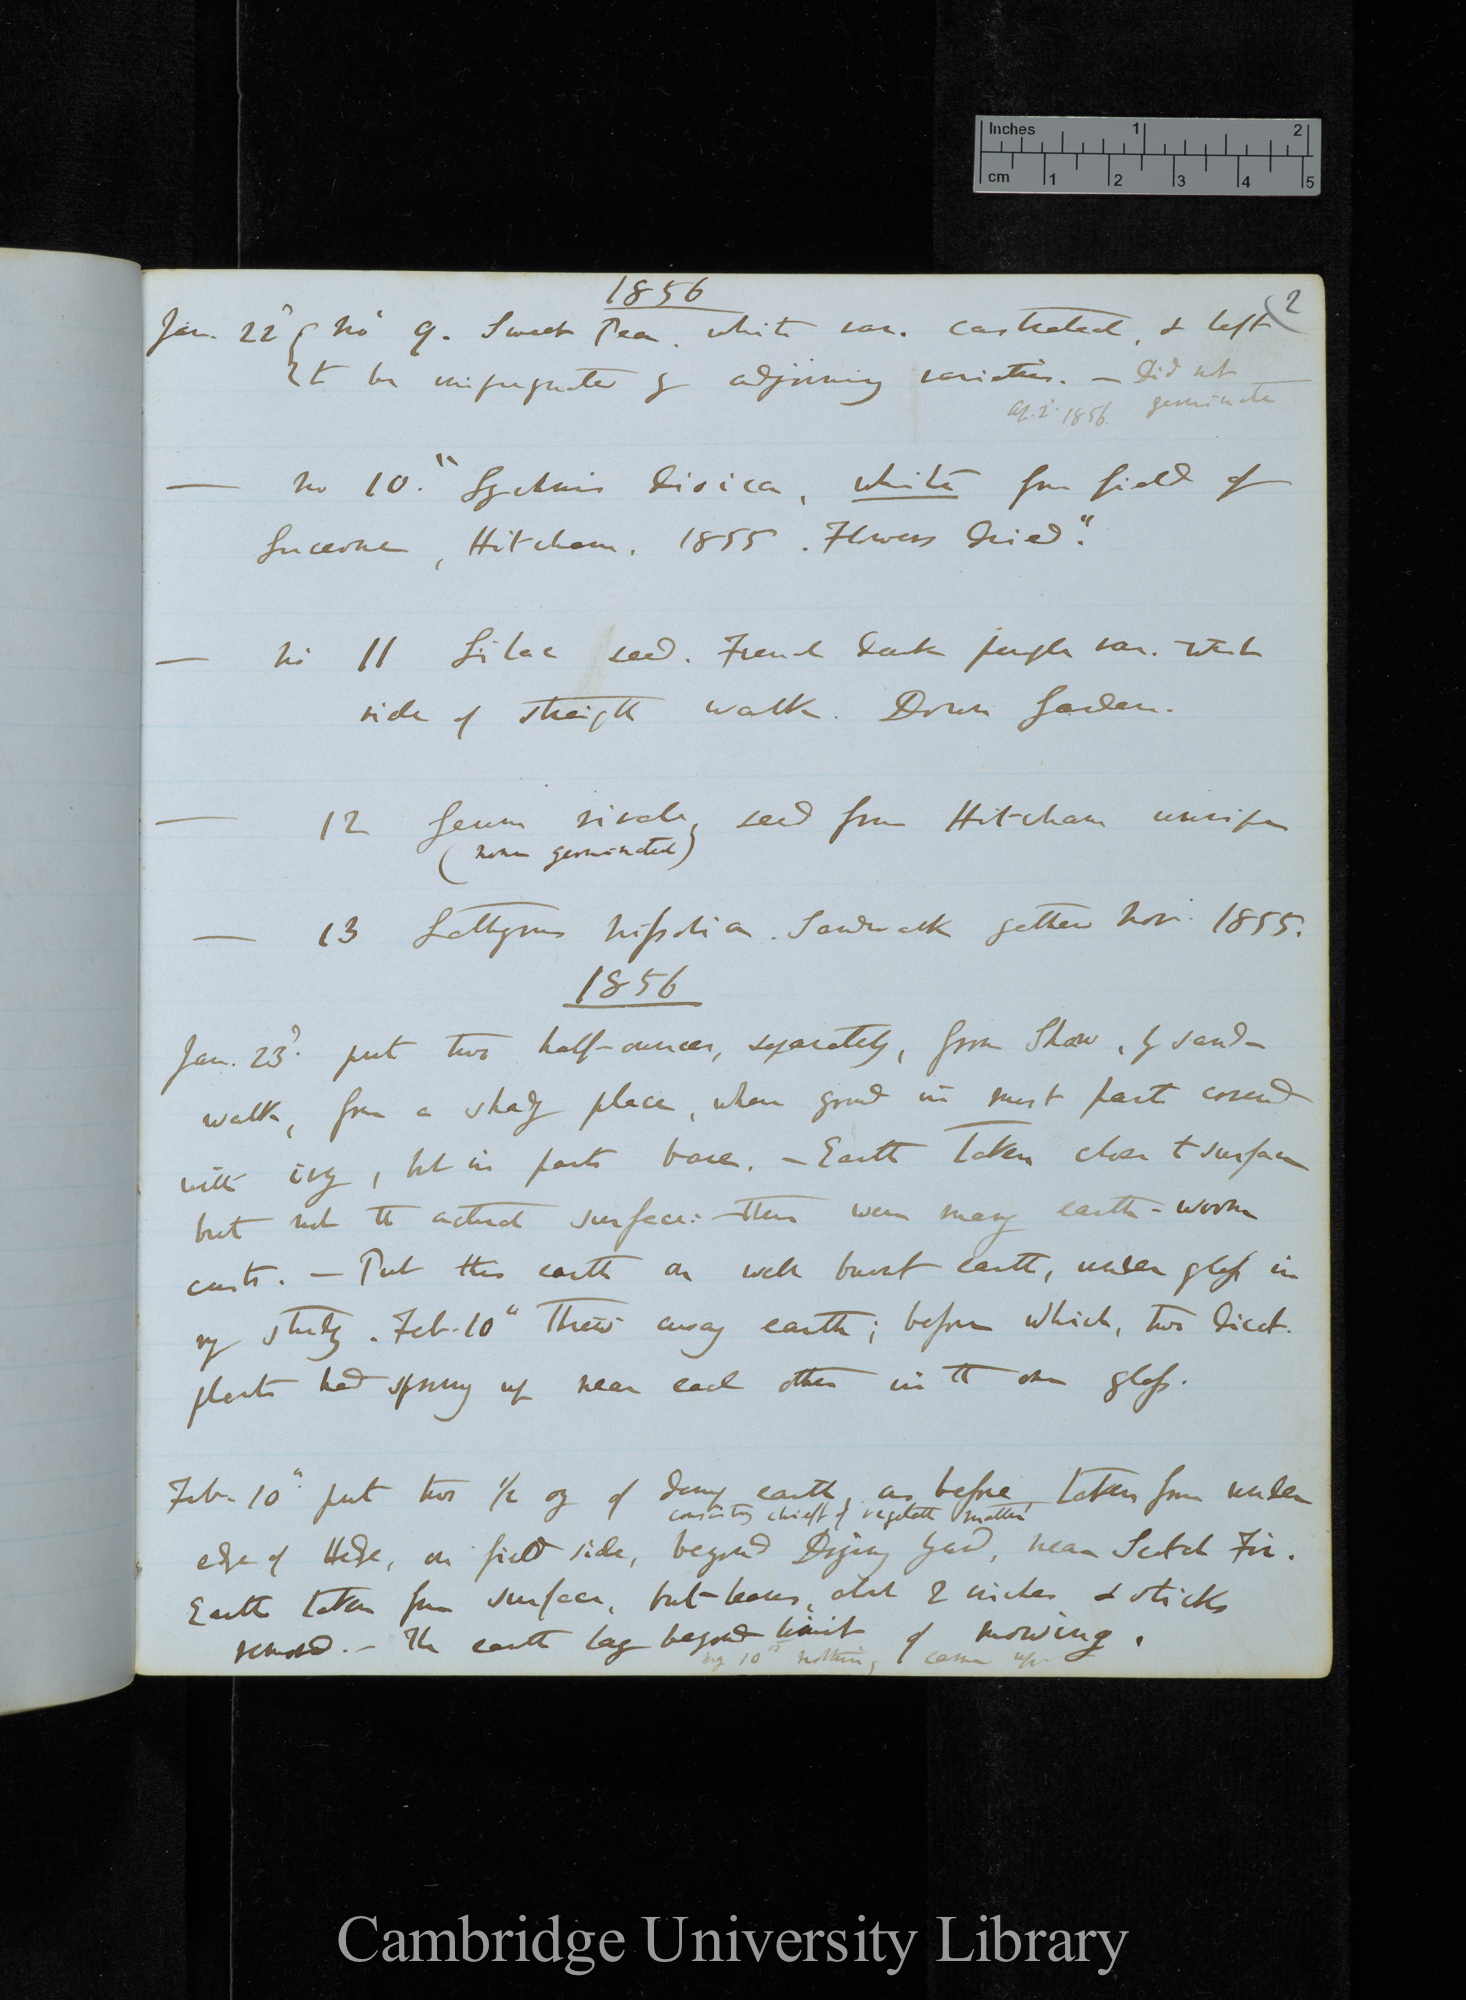 Inches 1 2
cm 1 2 3 4 5
1856
2
Jan. 22d no 9. Sweet Pea. white var. castrated, & left
to be impregnated by adjoining varieties. — Did not
Ap. 2d. 1856. germinate
— no 10. "Lychnis dioica, white from field of
Lucerne, Hitcham. 1855. Flowers dried".
— no 11 Lilac seed. French dark purple var.
side of straight walk. Down Garden.
— 12 Geum rivale, seed from Hitcham unripe
(none germinated)
— 13 Lathyrus nissolia. Sandwalk gathered Nov. 1855.
1856
Jan. 23d. put two half-ounces, separately, from , by sand-
walk, from a shady place, where ground in most part covered
with ivy, but in parts bare. — Earth taken close to surface
but not the actual surface: – there were many earth-worm
casts. — Put this earth on well burnt earth, under glass in
my study. Feb. 10th Threw away earth; before which, two dicot.
plants had sprung up near each other in the one glass.
Feb. 10th. put two 1/2 oz of damp earth, as before taken from under
consisting chiefly of vegetable matter
edge of Hedge, on field side, beyond Drying Yard, near Scotch Fir.
Earth taken from surface, but leaves, about 2 inches & sticks
removed. — The earth lay beyond limit of mowing.
my 10th nothing came up
Cambridge University Library